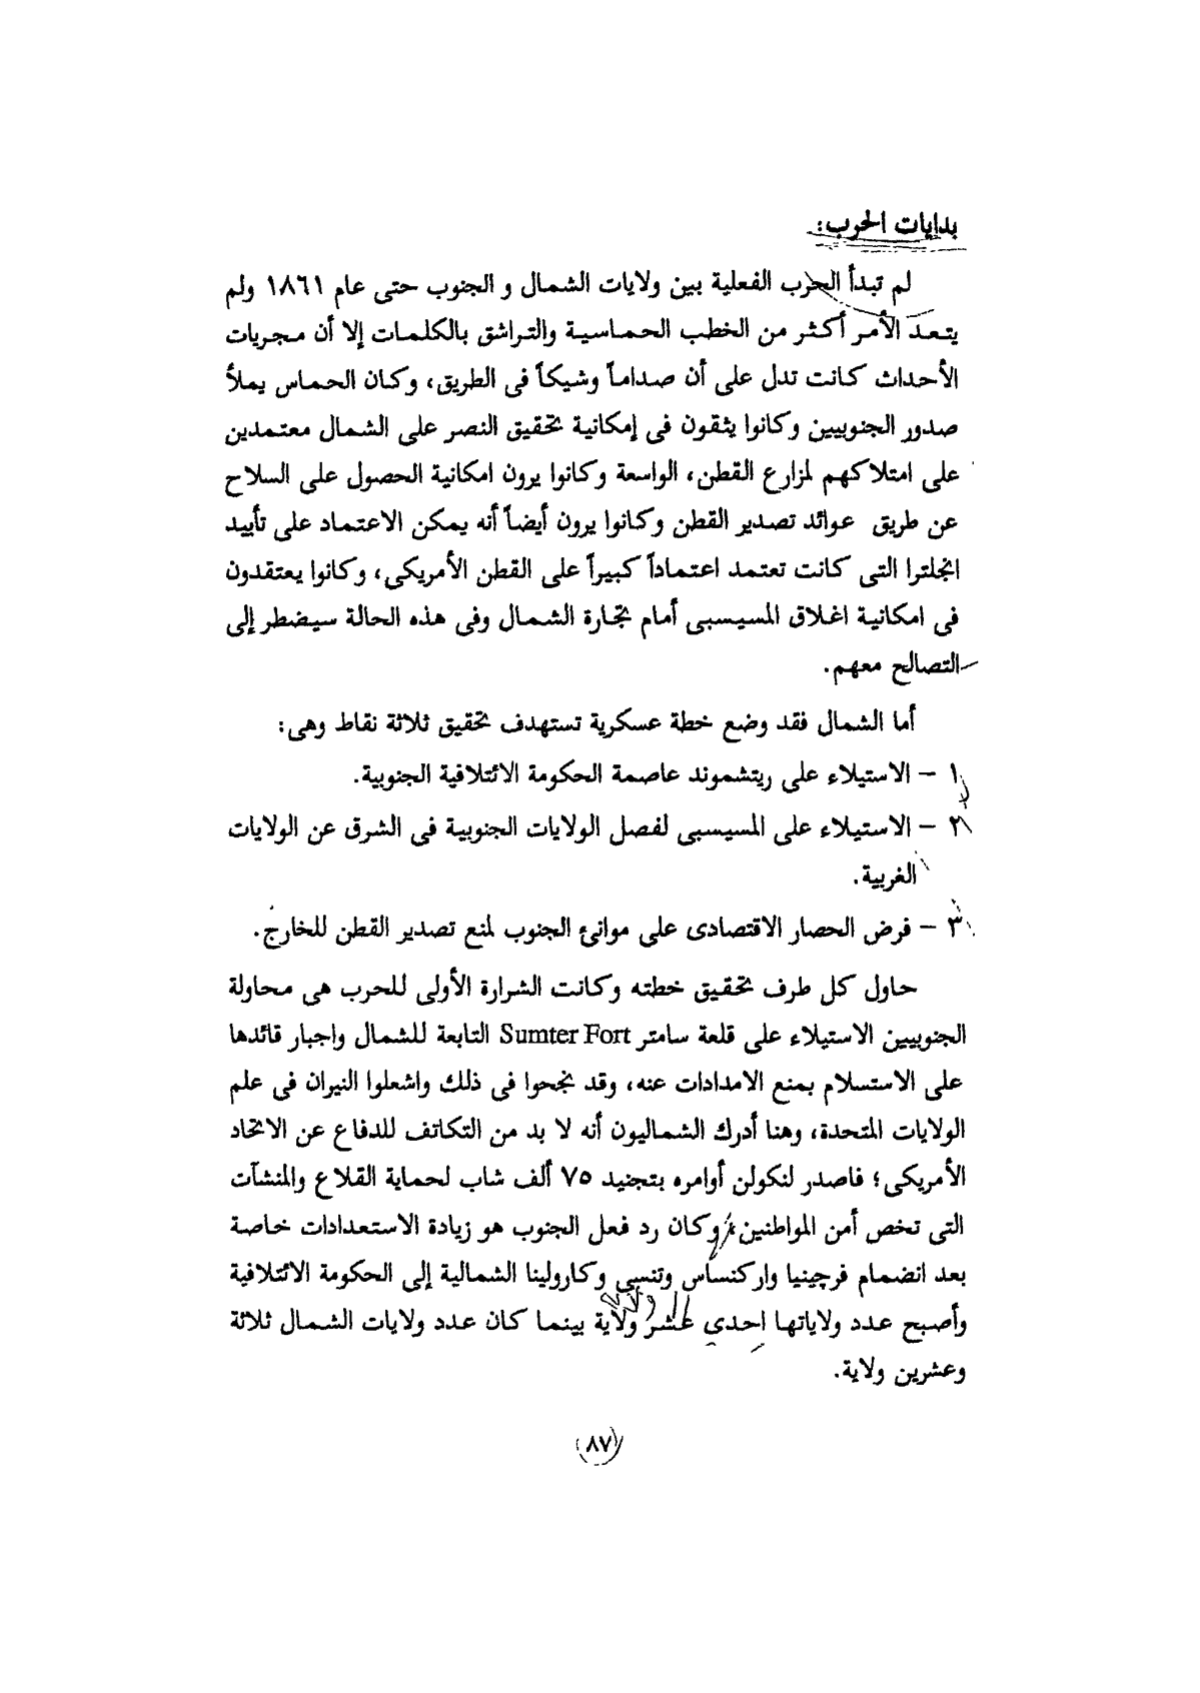 بدايات الحرب:
لم تبدأ الحرب الفعلية بين ولايات الشمال و الجنوب حتى عام ١٨٦١ ولم
يتعد الأمر أكثر من الخطب الحماسية والتراشق بالكلمات إلا أن مجريات
الأحداث كانت تدل على أن صداماً وشيكاً فى الطريق، وكان الحماس يملأ
صدور الجنوبيين وكانوا يثقون فى إمكانية تحقيق النصر على الشمال معتمدين
على امتلاكهم لمزارع القطن، الواسعة وكانوا يرون امكانية الحصول على السلاح
عن طريق عوائد تصدير القطن وكانوا يرون أيضاً أنه يمكن الاعتماد على تأييد
انجلترا التى كانت تعتمد اعتماداً كبيراً على القطن الأمريكى، وكانوا يعتقدون
فى امكانية اغلاق المسيسبى أمام تجارة الشمال وفى هذه الحالة سيضطر إلى
التصالح معهم.
أما الشمال فقد وضع خطة عسكرية تستهدف تحقيق ثلاثة نقاط وهى:
١ - الاستيلاء على ريتشموند عاصمة الحكومة الائتلافية الجنوبية.
٢ - الاستيلاء على المسيسبى لفصل الولايات الجنوبية فى الشرق عن الولايات
الغربية.
٣ - فرض الحصار الاقتصادى على موانئ الجنوب لمنع تصدير القطن للخارج.
حاول كل طرف تحقيق خطته وكانت الشرارة الأولى للحرب هى محاولة
الجنوبيين الاستيلاء على قلعة سامتر Sumter Fort التابعة للشمال واجبار قائدها
على الاستسلام بمنع الامدادات عنه، وقد نجحوا فى ذلك واشعلوا النيران فى علم
الولايات المتحدة، وهنا أدرك الشماليون أنه لا بد من التكاتف للدفاع عن الاتحاد
الأمريكى؛ فاصدر لنكولن أوامره بتجنيد ٧٥ ألف شاب لحماية القلاع والمنشآت
التى تخص أمن المواطنين، وكان رد فعل الجنوب هو زيادة الاستعدادات خاصة
بعد انضمام فرچينيا واركنساس وتنسى وكارولينا الشمالية إلى الحكومة الائتلافية
وأصبح عدد ولاياتها احدى عشر ولاية بينما كان عدد ولايات الشمال ثلاثة
وعشرين ولاية.
٨٧